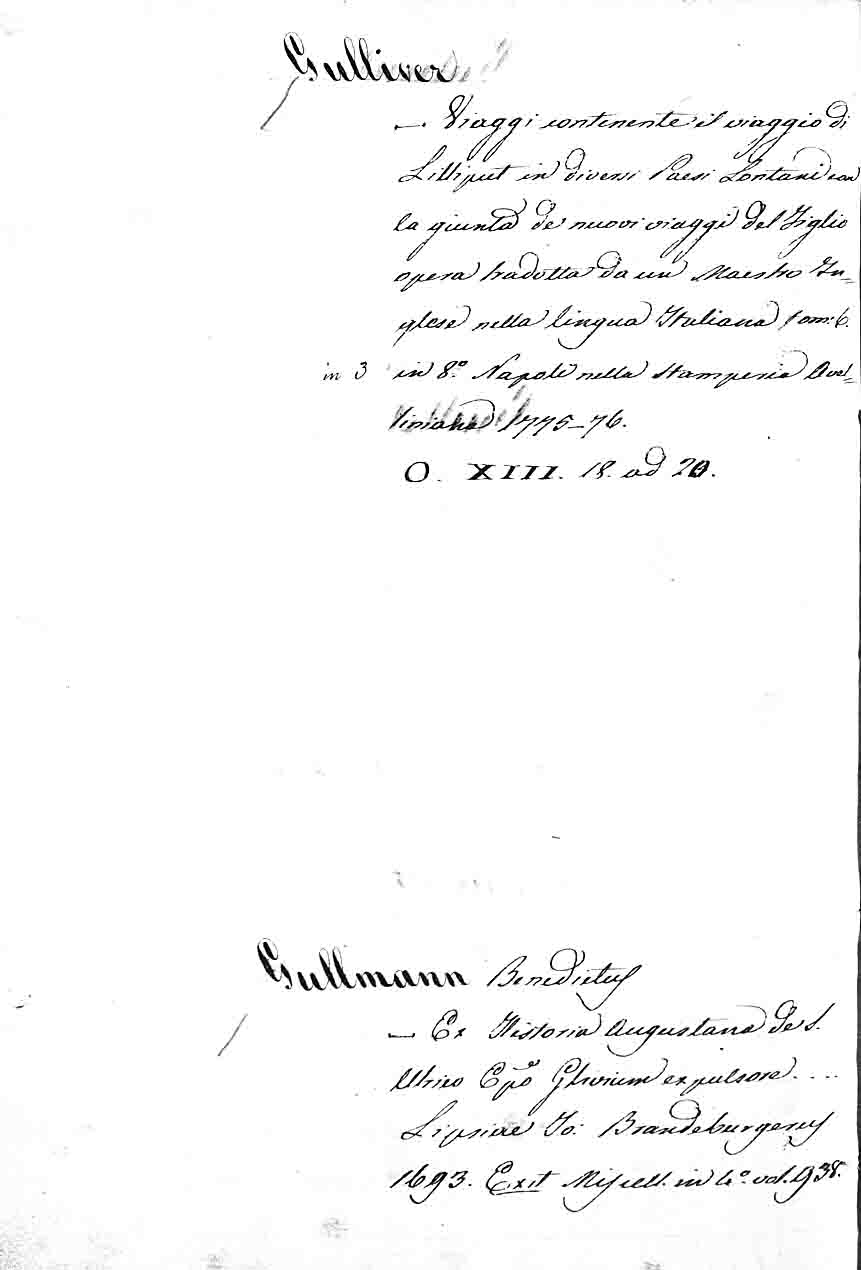 Gulliver
— Viaggi contenente il viaggio di
Lilliput in diversi Paesi Lontani con
la giunta de nuovi viaggi del Figlio
opera tradotta da un Maestro In-
glese nella lingua Italiana tom: 6.
in 3 in 8.º Napoli nella stamperia Avel-
liniana 1775-76.
O. XIII. 18. ad 20.
Gullmann Benedictus
— Ex Historia Augustana de S.
Ulrico Epõ Glirium expulsore....
Lipsiae Jo: Brandeburgerus
1693. Exit Miscell. in 4.º vol. 938.